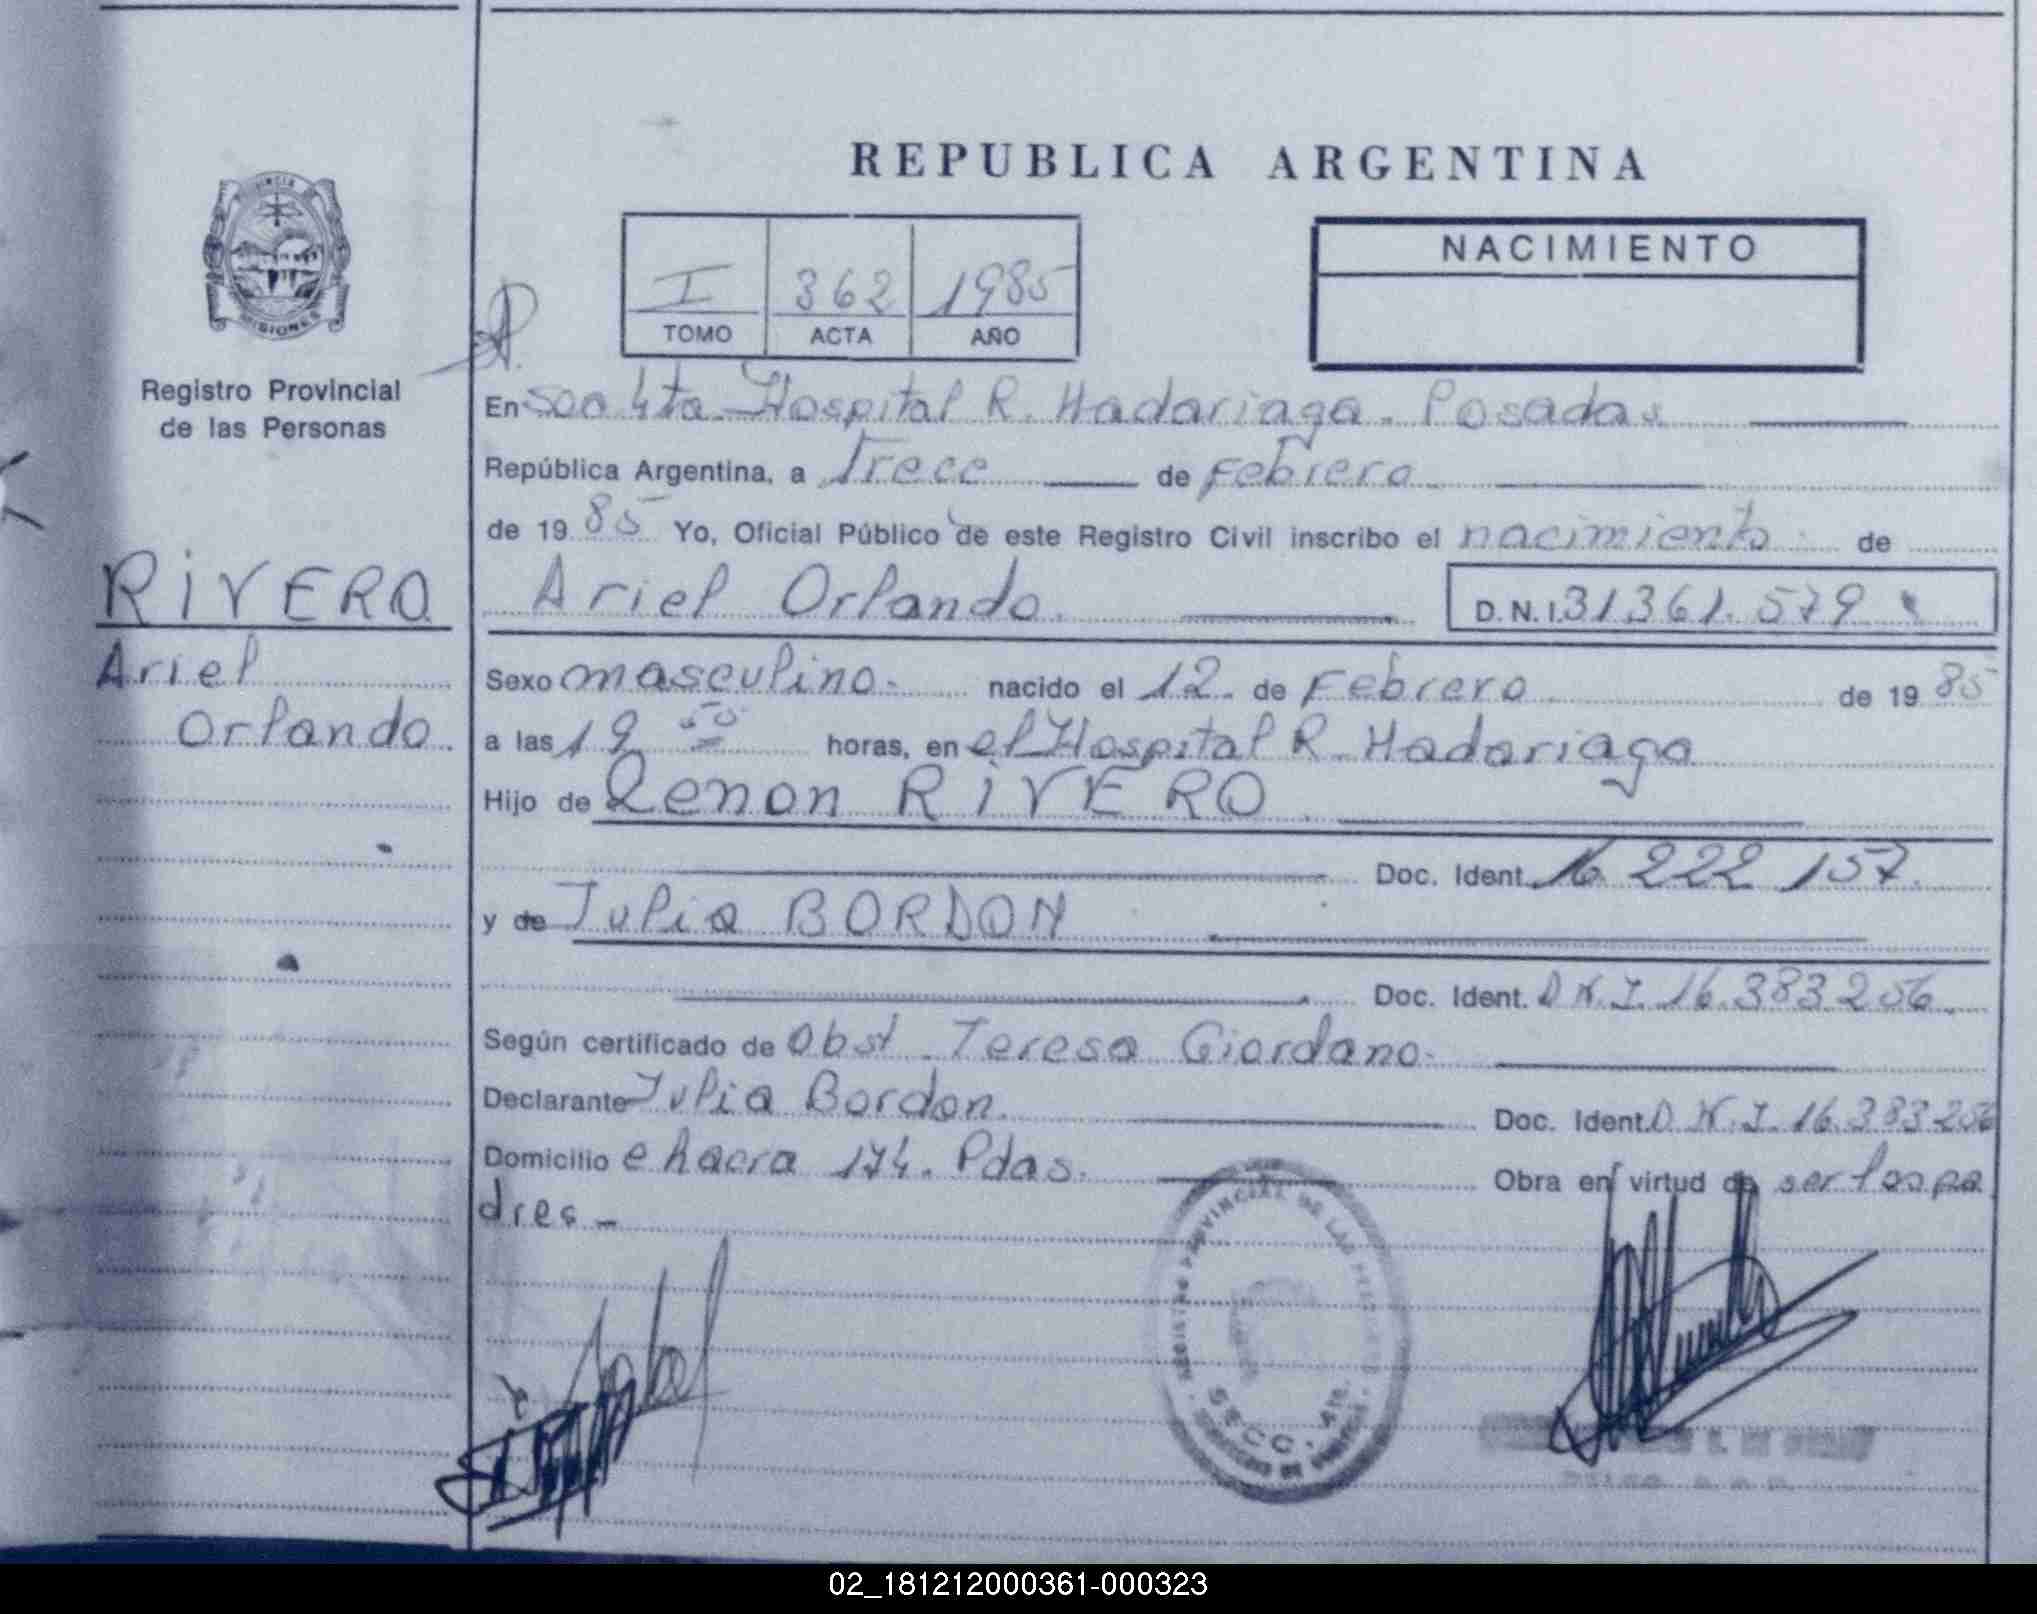 REPUBLICA ARGENTINA
PROVINCIA DE
MISIONES
Registro Provincial
de las Personas
I 362 1985
TOMO ACTA AÑO
NACIMIENTO
RIVERO
Ariel
Orlando.
En Secc 4ta Hospital R. Madariaga. Posadas
República Argentina, a Trece de Febrero
de 1985 Yo, Oficial Público de este Registro Civil inscribo el nacimiento de
Ariel Orlando. D.N.I. 31361.579
Sexo masculino. nacido el 12. de Febrero de 1985
a las 19 50 horas, en el Hospital R. Madariaga
Hijo de Zenon RIVERO
Doc. Ident. 16 222 157.
y de Julia BORDON
Doc. Ident. D.N.I. 16.383256.
Según certificado de Obst. Teresa Giordano.
Declarante Julia Bordon. Doc. Ident. D.N.I. 16.383256
Domicilio chacra 174. Pdas. Obra en virtud de ser los pa
dres -
REGISTRO PROVINCIAL DE LAS PERSONAS
SECC. 4ta.
02_181212000361-000323